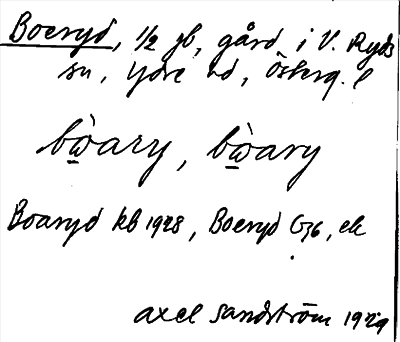 Boeryd, 1/2 gb, gård i V. Ryds
sn, Ydre hd, Österg. l
bὼary, bὼary
Boaryd kb 1928, Boeryd G36, ek
Axel Sandström 1929